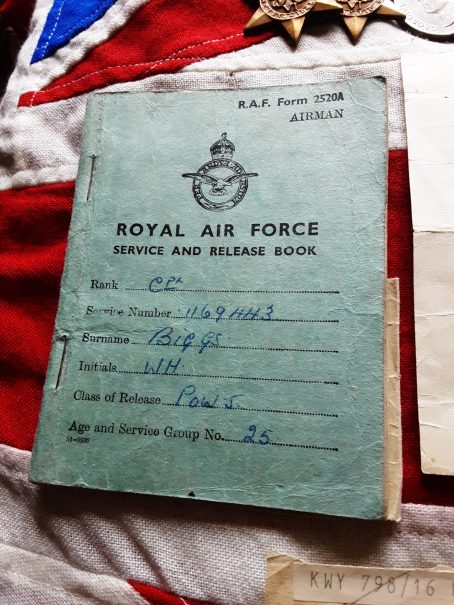 R.A.F. Form 2520A
AIRMAN
ROYAL AIR FORCE
SERVICE AND RELEASE BOOK
Rank CPL
Service Number 1169443
Surname BIGGS
Initials WH
Class of Release
Age and Service Group No. 25
KWY 798/16